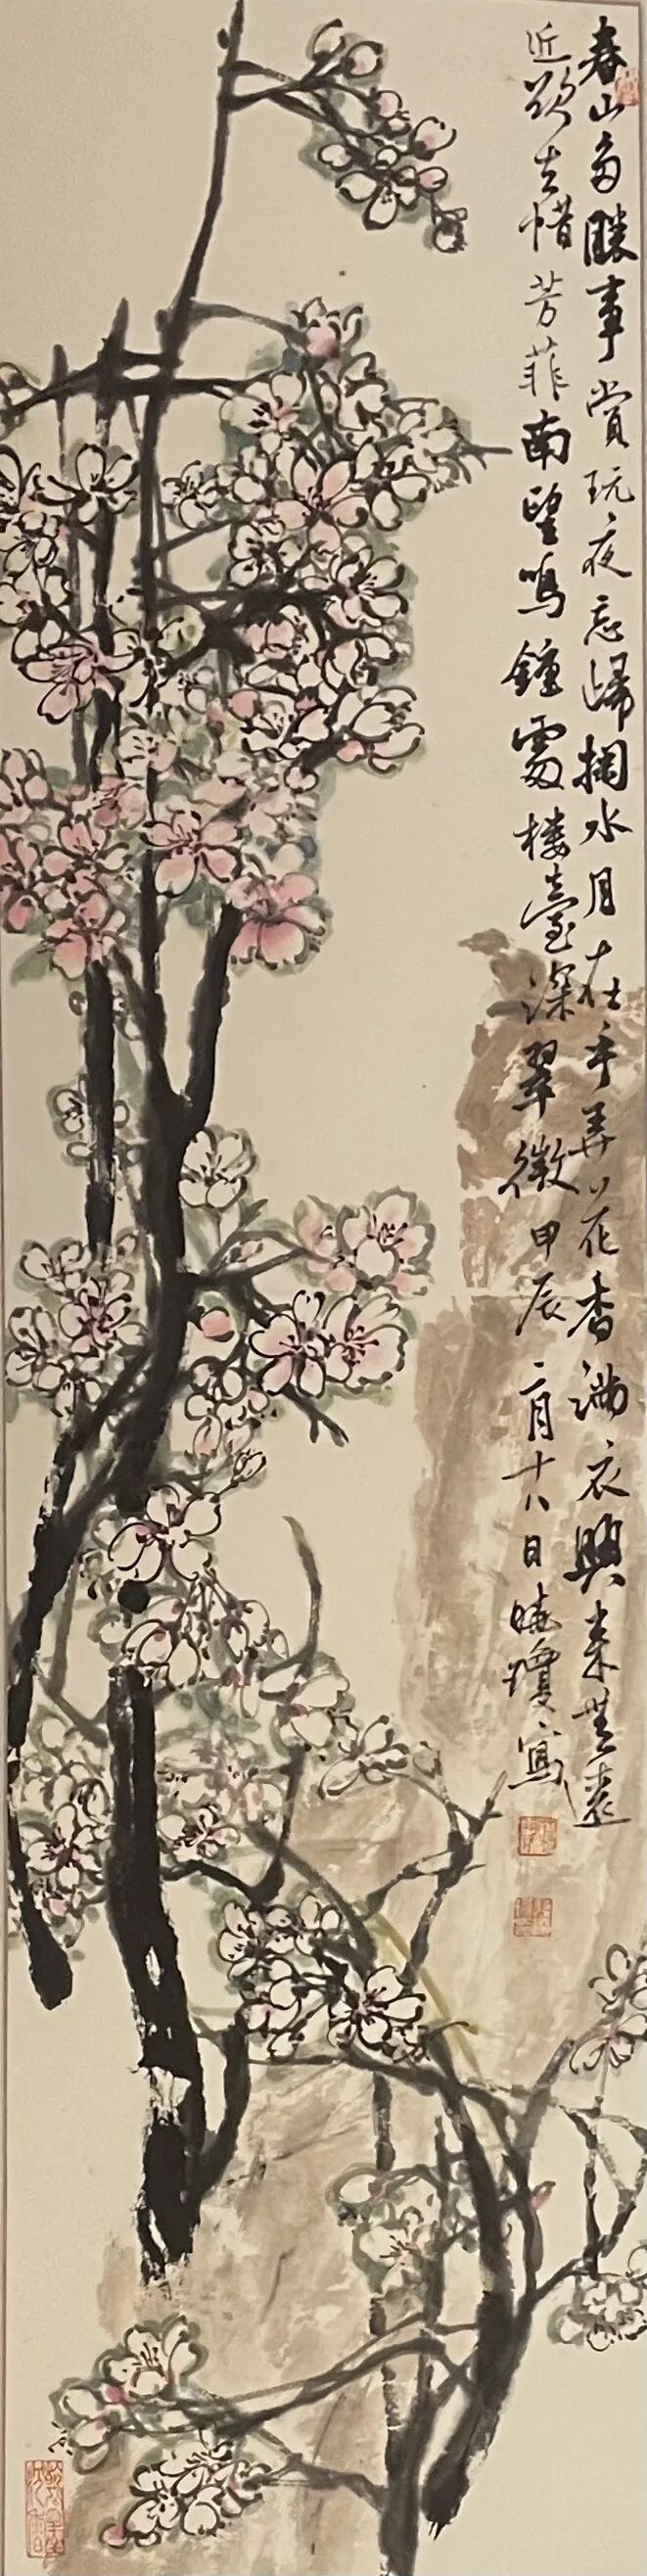 春山多勝事賞玩夜忘歸掬水月在手弄花香滿衣興來無遠
近欲去惜芳菲南望鳴鐘處楼臺深翠微甲辰二月十八日曉瓊寫